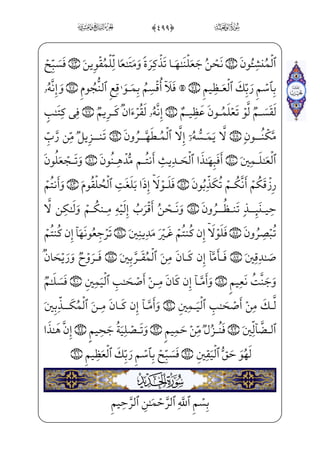 سورة الواقعة ﴿٤٩٩﴾ الجزء السابع والعشرون
ٱلْمُنشِـُٔونَ ٧٢ نَحْنُ جَعَلْنَٰهَا تَذْكِرَةً وَمَتَٰعًا لِّلْمُقْوِينَ ٧٣ فَسَبِّحْ
بِٱسْمِ رَبِّكَ ٱلْعَظِيمِ ٧٤ ۞ فَلَآ أُقْسِمُ بِمَوَٰقِعِ ٱلنُّجُومِ ٧٥ وَإِنَّهُۥ
لَقَسَمٌ لَّوْ تَعْلَمُونَ عَظِيمٌ ٧٦ إِنَّهُۥ لَقُرْءَانٌ كَرِيمٌ ٧٧ فِى كِتَٰبٍ
مَّكْنُونٍ ٧٨ لَّا يَمَسُّهُۥٓ إِلَّا ٱلْمُطَهَّرُونَ ٧٩ تَنزِيلٌ مِّن رَّبِّ
ٱلْعَٰلَمِينَ ٨٠ أَفَبِهَٰذَا ٱلْحَدِيثِ أَنتُم مُّدْهِنُونَ ٨١ وَتَجْعَلُونَ
رِزْقَكُمْ أَنَّكُمْ تُكَذِّبُونَ ٨٢ فَلَوْلَآ إِذَا بَلَغَتِ ٱلْحُلْقُومَ ٨٣ وَأَنتُمْ
حِينَئِذٍ تَنظُرُونَ ٨٤ وَنَحْنُ أَقْرَبُ إِلَيْهِ مِنكُمْ وَلَٰكِن لَّا
تُبْصِرُونَ ٨٥ فَلَوْلَآ إِن كُنتُمْ غَيْرَ مَدِينِينَ ٨٦ تَرْجِعُونَهَآ إِن كُنتُمْ
صَٰدِقِينَ ٨٧ فَأَمَّآ إِن كَانَ مِنَ ٱلْمُقَرَّبِينَ ٨٨ فَرَوْحٌ وَرَيْحَانٌ
وَجَنَّتُ نَعِيمٍ ٨٩ وَأَمَّآ إِن كَانَ مِنْ أَصْحَٰبِ ٱلْيَمِينِ ٩٠ فَسَلَٰمٌ
لَّكَ مِنْ أَصْحَٰبِ ٱلْيَمِينِ ٩١ وَأَمَّآ إِن كَانَ مِنَ ٱلْمُكَذِّبِينَ
ٱلضَّآلِّينَ ٩٢ فَنُزُلٌ مِّنْ حَمِيمٍ ٩٣ وَتَصْلِيَةُ جَحِيمٍ ٩٤ إِنَّ هَٰذَا
لَهُوَ حَقُّ ٱلْيَقِينِ ٩٥ فَسَبِّحْ بِٱسْمِ رَبِّكَ ٱلْعَظِيمِ ٩٦
سُورَةُ الحَدِيدِ
بِسْمِ ٱللَّهِ ٱلرَّحْمَٰنِ ٱلرَّحِيمِ